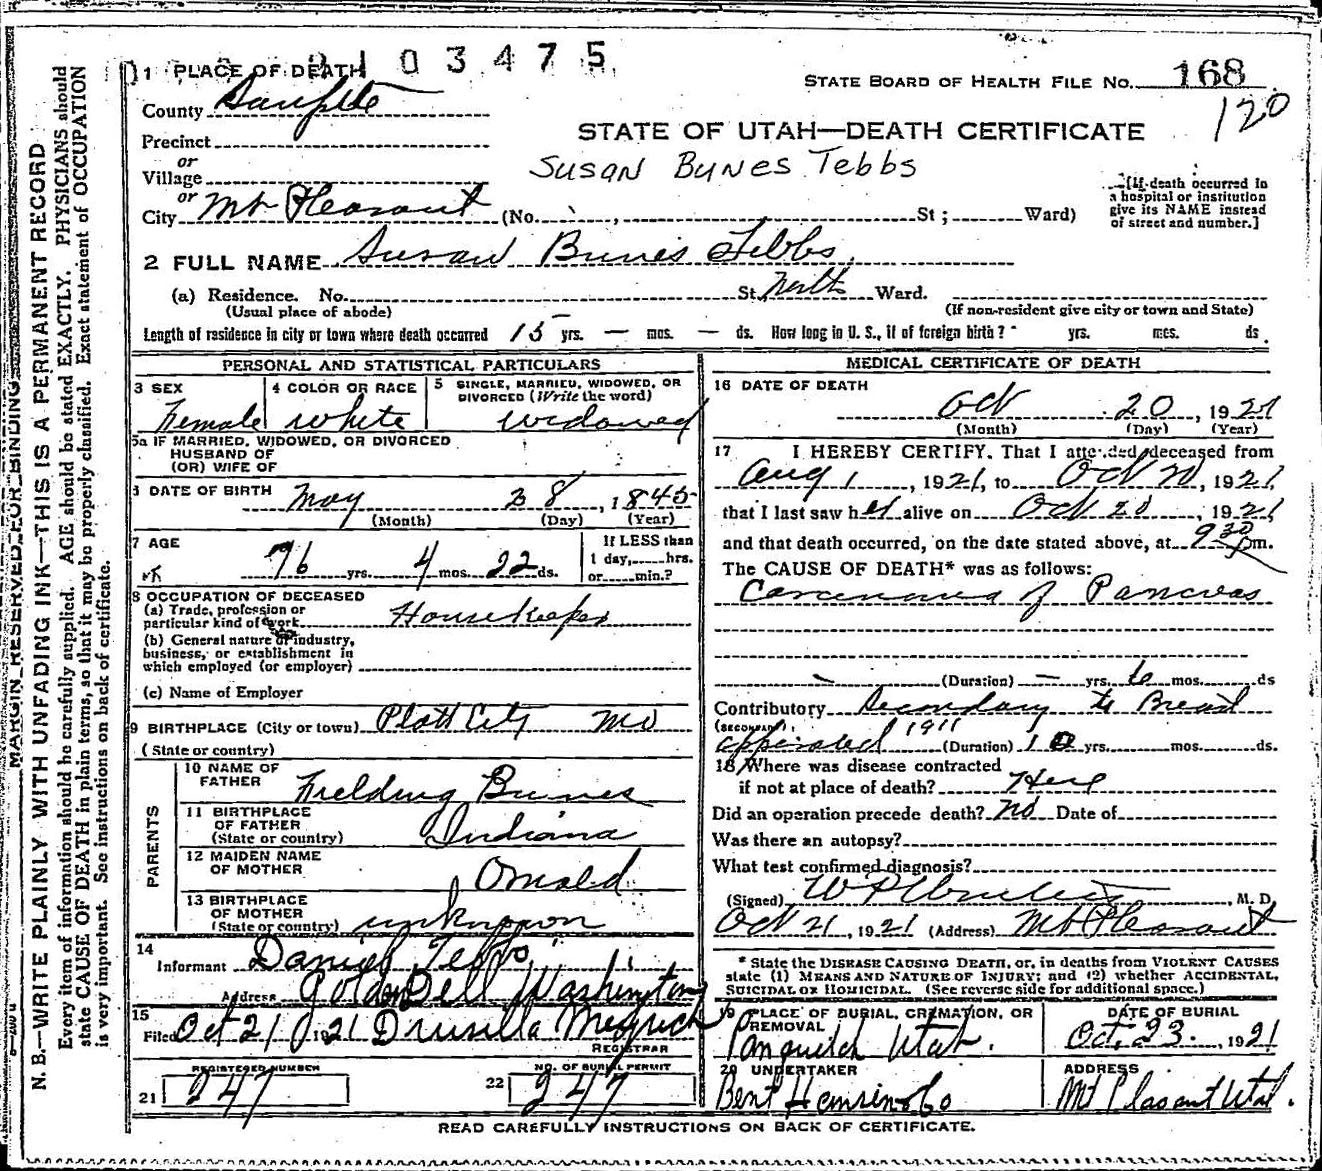 8103475
1 PLACE OF DEATH
STATE BOARD OF HEALTH FILE No. 168
120
County Sanpete
STATE OF UTAH—DEATH CERTIFICATE
Precinct
or
Village
Susan Bunes Tebbs
or
City Mt Pleasant (No. , St ; Ward)
[If death occurred in
a hospital or institution
give its NAME instead
of street and number.]
2 FULL NAME Susan Bunes Tebbs
(a) Residence. No. St., North Ward.
(Usual place of abode) (If non-resident give city or town and State)
Length of residence in city or town where death occurred 15 yrs. — mos. — ds. How long in U. S., if of foreign birth? yrs. mos. ds.
PERSONAL AND STATISTICAL PARTICULARS
3 SEX
Female
4 COLOR OR RACE
White
5 SINGLE, MARRIED, WIDOWED, OR
DIVORCED (Write the word)
Widowed
5a IF MARRIED, WIDOWED, OR DIVORCED
HUSBAND OF
(OR) WIFE OF
6 DATE OF BIRTH May 28, 1845
(Month) (Day) (Year)
7 AGE
76 yrs. 4 mos. 22 ds.
If LESS than
1 day, hrs.
or min.?
8 OCCUPATION OF DECEASED
(a) Trade, profession or
particular kind of work Housekeeper
(b) General nature of industry,
business, or establishment in
which employed (or employer)
(c) Name of Employer
9 BIRTHPLACE (City or town) Platt City Mo
(State or country)
PARENTS
10 NAME OF
FATHER Fielding Bunes
11 BIRTHPLACE
OF FATHER
(State or country) Indiana
12 MAIDEN NAME
OF MOTHER Onald
13 BIRTHPLACE
OF MOTHER
(State or country) unknown
14
Informant Daniel Tebbs
Address Goldendell Washington
15
Filed Oct 21 1921 Drusilla
REGISTRAR
REGISTERED NUMBER
21 247
NO. OF BURIAL PERMIT
22 247
MEDICAL CERTIFICATE OF DEATH
16 DATE OF DEATH
Oct 20, 1921
(Month) (Day) (Year)
17 I HEREBY CERTIFY, That I attended deceased from
Aug 1, 1921, to Oct 20, 1921,
that I last saw her alive on Oct 20, 1921
and that death occurred, on the date stated above, at 9 30 pm.
The CAUSE OF DEATH* was as follows:
Carcenoma of Pancreas
(Duration) — yrs. 6 mos. ds
Contributory Secondary to Breast
(SECONDARY)
opperated 1911 (Duration) 10 yrs. mos. ds.
18 Where was disease contracted
if not at place of death? Here
Did an operation precede death? No Date of
Was there an autopsy?
What test confirmed diagnosis?
(Signed) , M. D.
Oct 21, 1921 (Address) Mt Pleasant
* State the DISEASE CAUSING DEATH, or, in deaths from VIOLENT CAUSES
state (1) MEANS AND NATURE OF INJURY; and (2) whether ACCIDENTAL,
SUICIDAL OR HOMICIDAL. (See reverse side for additional space.)
19 PLACE OF BURIAL, CREMATION, OR
REMOVAL
Panquitch Utah.
DATE OF BURIAL
Oct. 23., 1921
20 UNDERTAKER
Bent
ADDRESS
Mt Pleasant Utah.
READ CAREFULLY INSTRUCTIONS ON BACK OF CERTIFICATE.
MARGIN RESERVED FOR BINDING
N. B.—WRITE PLAINLY WITH UNFADING INK—THIS IS A PERMANENT RECORD
Every item of information should be carefully supplied. AGE should be stated EXACTLY. PHYSICIANS should
state CAUSE OF DEATH in plain terms, so that it may be properly classified. Exact statement of OCCUPATION
is very important. See instructions on back of certificate.